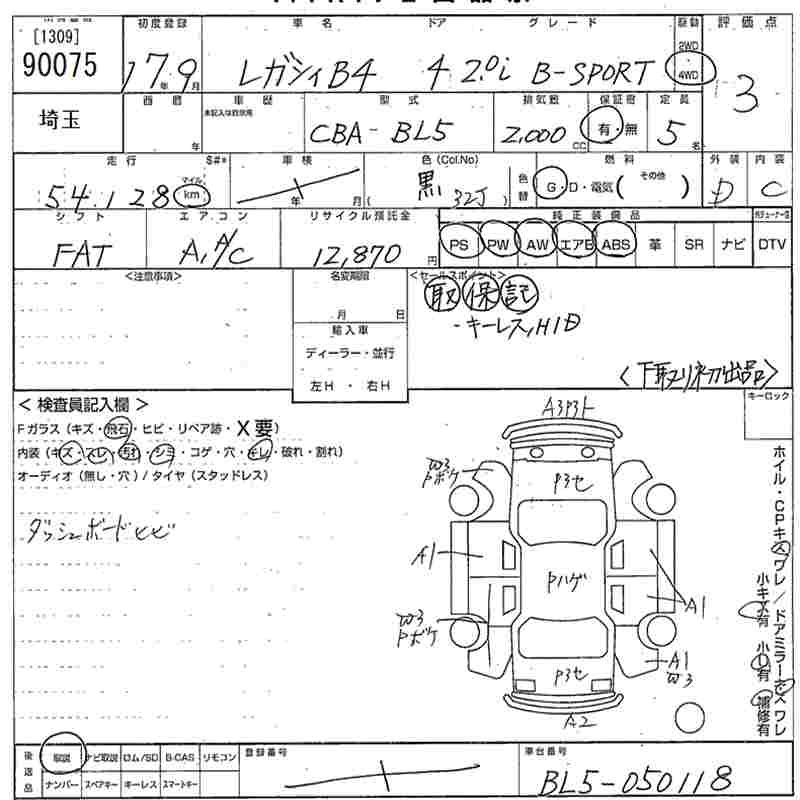 [1309]
90075
初度登録 車名 ドア グレード 駆動 評価点
17年9月 レガシィB4 4 2.0i B-SPORT 2WD 4WD 3
埼玉
西暦 年 車歴 未記入は自家用 型式 排気数 保証書 定員
CBA-BL5 2,000cc 有・無 5名
走行 S#* 車検 色(Col.No) 燃料 外装 内装
54,128 マイル km 年 月 黒 (32J) 色替 G・D・電気( その他 ) D C
シフト エアコン リサイクル預託金 純正装備品
FAT A,A/C 12,870円 PS PW AW エアB ABS 革 SR ナビ DTV
<注意事項> 名変期限 <セールスポイント>
月 日
取 保 記
・キーレス,HID
輸入車
ディーラー・並行
左H・右H
〈下取り初出品〉
＜検査員記入欄＞
Fガラス(キズ・飛石・ヒビ・リペア跡・X要)
内装(キズ・スレ・汚れ・シミ・コゲ・穴・キレ・破れ・割れ)
オーディオ(無し・穴)/タイヤ(スタッドレス)
ダッシュボードヒビ
キーロック
A3P3ト
W3
Pボケ
P3セ
A1
Pハゲ
A1
W3
Pボケ
A1
W3
P3セ
A2
ホイル・CPキズワレ/ドアミラーキズワレ
小キズ有 小U有 補修有
後返品 取説 ナビ取説 ロム/SD B-CAS リモコン
ナンバー スペアキー キーレス スマートキー
登録番号
車台番号
BL5-050118